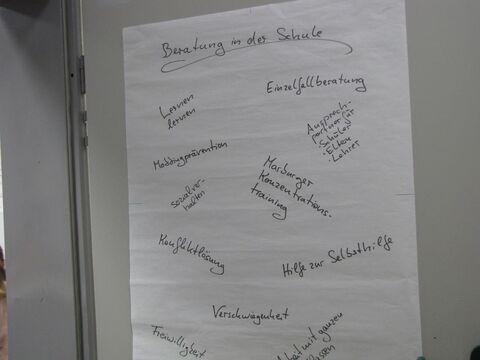 Beratung in der Schule
Einzelfallberatung
Lernen
lernen
Ansprech-
partner für
- Schüler
- Eltern
- Lehrer
Mobbingprävention
Marburger
Konzentrations-
training
sozialver-
halten
Konfliktlösung
Hilfe zur Selbsthilfe
Verschwiegenheit
Freiwilligkeit
mit ganzen